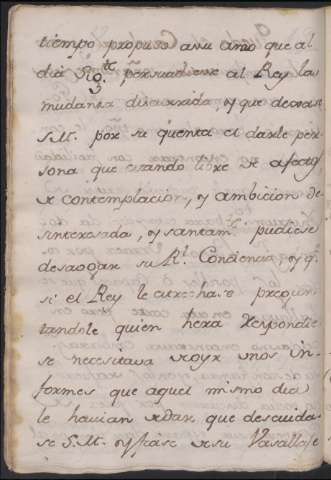 tiempo propuso a su amo que al
dia Sigte. pa. persuadiesse al Rey la
mudanza discurrida, y que dexasse
S.M. por su quenta el darle per
sona que estando libre de afecto,
de contemplacion, y ambicion de
sinteresada, y santamte. pudiese
desaogar su Rl. Conciencia, y qe.
si el Rey le estrechase pregun
tandole quien hera Respondie
se necesitava de oyr unos in
formes que aquel mismo dia
le havian de dar, que descuida
se S.M. y fiase de su Vasallaje